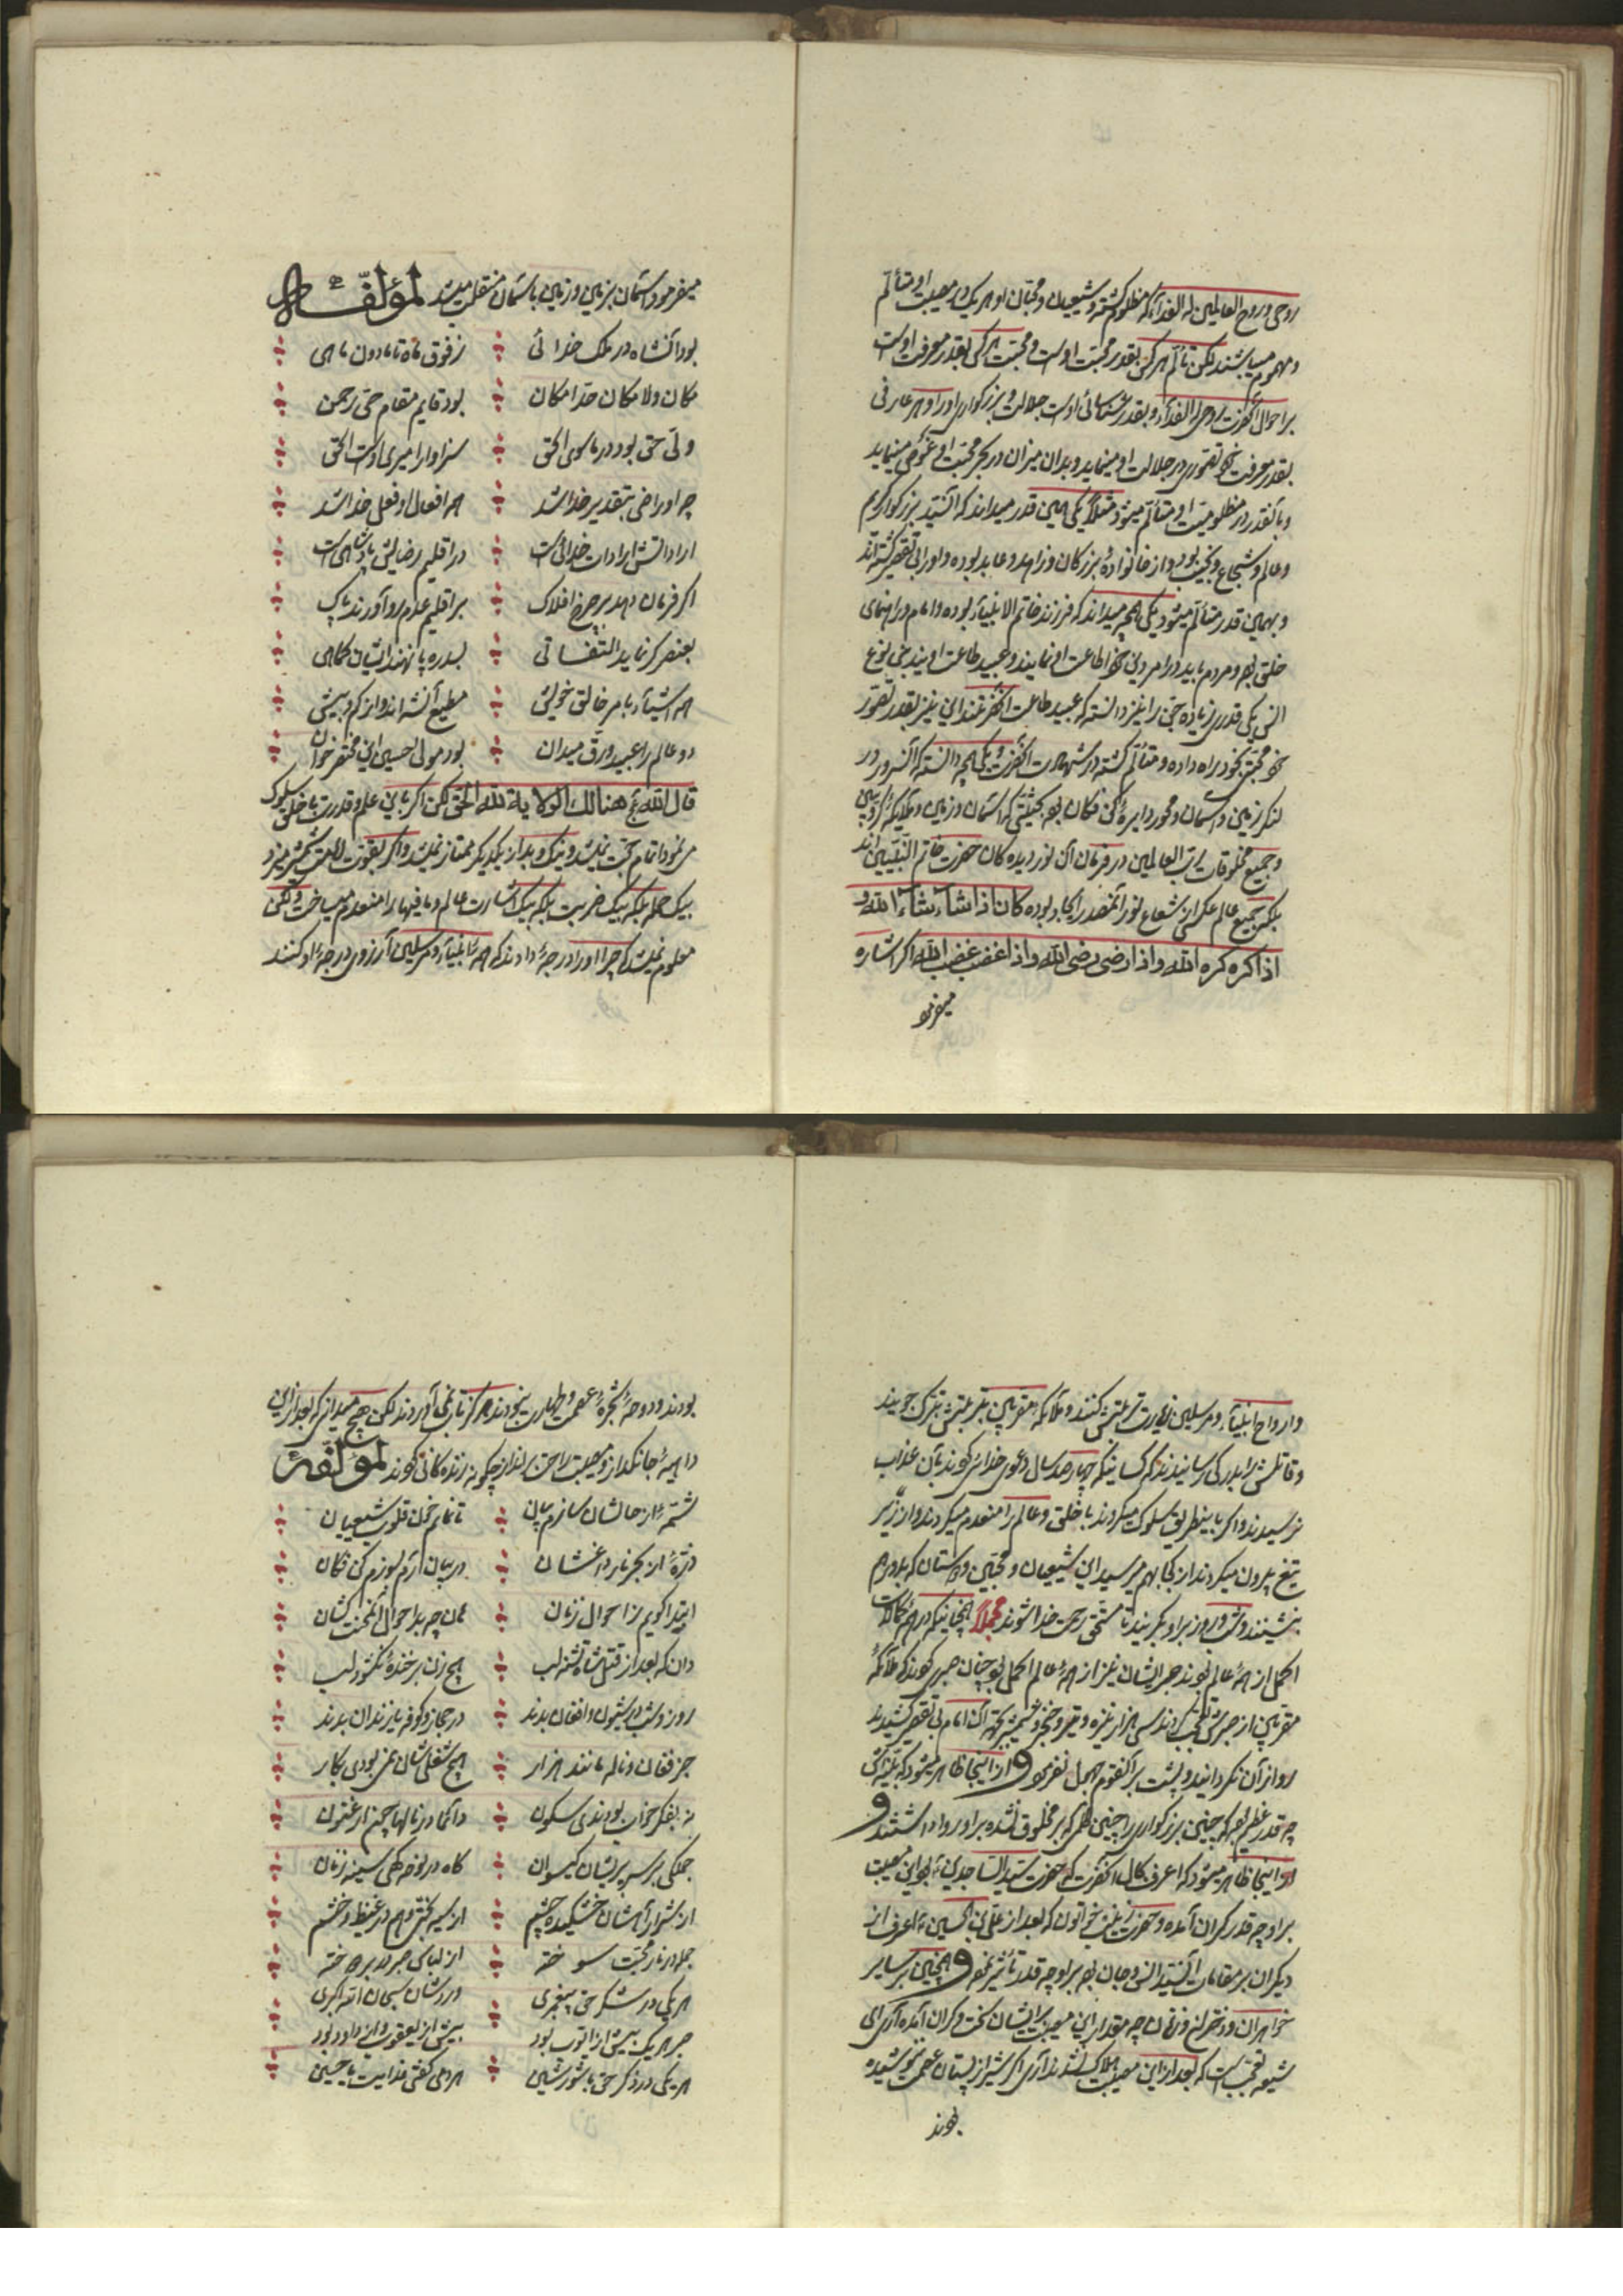 روحی و روح العالمین له الفدآء که مظلوم کشته و شیعیان و محبّان او هر یک در مصیبت او متألّم
و مهموم میباشند لکن تألّم هر کس بقدر محبّت اوست و محبّت هر کس بقدر معرفت اوست
بر احوال آنحضرت روحی له الفدآء و بقدر شناسائی اوست جلالت و بزرکواری او را و هر عارفی
بقدر معرفت خود تصوّری در جلالت او مینماید و بدان میزان در بحر محبّت او غوص مینماید
و بآنقدر در مظلومیّت او متألّم میشود مثلاً یکی همین قدر میداند که آنسیّد بزرکوار کریم
و عالم و شجاع و نجیب بود و از خانوادهٔ بزرکان و زاهد و عابد بوده و او را بی تقصیر کشته‌اند
و بهمین قدر متألّم میشود یکی همچه میداند که فرزند خاتم الانبیآء بوده و امام و راهنمای
خلق بود و مردم باید در امر دین خود اطاعت او نمایند و عبید طاعت اویند جن نوع
انس یکی قدری زیاده جن را نیز دانسته که عبید طاعت آنحضرتند این نیز بقدر تصوّر
خود محبّتی بخود راه داده و متألّم کشته در شهادت آنحضرت و یکی همچه دانسته که آنسرور در
لنکر زمین و آسمان و محور دایرهٔ کن فکان بود بحیثیتی که آسمان و زمین و ملائکه کرّوبین
و جمیع مخلوقات ربّ العالمین در فرمان آن نور دیده کان حضرت خاتم النّبیّین‌اند
بلکه جمیع عالم عکس از شعاع نور آنمصدر ایجاد بوده کان اذا شآء شآء الله و
اذا کره کره الله و اذا رضی رضی الله و اذا غضب غضب الله اکر اشاره
میفرمود
میفرمود آسمان بزمین و زمین بآسمان منقلب میشد لمؤلّفه
بود آنشاه در ملک خدائی
ز فوق ماه تا مادون ماهی
مکان و لا مکان حدّ امکان
بود قایم مقام حیّ رحمن
ولّی حق بود در ماسوی الحق
سزاوار امیری اوست الحق
چه او راضی بتقدیر خدا شد
همه افعال او فعل خدا شد
اراداتش ارادات خدائیست
در اقلیم رضایش پادشاهیست
اکر فرمان دهد بر چرخ افلاک
بر اقلیم عدم رو آورند پاک
بعنصر کر نماید التفاتی
بسدره پا نهند ایشان کماهی
همه اشیآء بامر خالق خویش
مطیع آنشه‌اند از کم و بیش
دو عالم را عبید و رقّ میدان
بود مولی حسین این مختصر خوان
قال الله عج هنالک الولایة لله الحق لکن اکر باین علم و قدرت با خلق سلوک
می نمود اتمام حجّت نمیشد و نیک و بد از یکدیکر ممتاز نمیشد و اکر بقوّت امامت شمشیر میزد
بیک حمله بلکه بیک ضربت بلکه بیک اشارت عالم و مافیها را منعدم میساخت و لکن
معلوم نمیشد که چرا او را درجهٔ دادند که همهٔ انبیآء و مرسلین آرزوی درجهٔ او کنند
و ارواح انبیآء و مرسلین زیارت تربتش کنند و ملآئکهٔ مقرّبین بتربتش تبرّک جویند
و قاتلش را بدرکی رسانیدند که کسانیکه چهارصد سال دعوی خدائی کردند بآن عذاب
نرسیدند و اکر باینطریق سلوک میکردند با خلق و عالم را منعدم میکردند و از زیر
تیغ بیرون میکردند از کجا بهم میرسید این شیعیان و محبّین و دوستان که بدور هم
بنشینند و شب و روز بر او بکریند تا مستحق رحمت خدا شوند مجملاً اینجانیکه در همهٔ کمالات
اکمل از همهٔ عالم بودند صبر ایشان نیز از همهٔ عالم اکمل بود چنان صبری کردند که ملآئکهٔ
مقرّبین از صبرش تعجّب کردند سی هزار نیزه و تیر و خنجر و شمشیر بجهة آن امام بی تقصیر کشیدند
رو از آن نکردانید و پشت بر آنقوم جهول نفرمود و از اینجا ظاهر میشود که بلیّه‌اش
چه قدر عظیم بود که چنین بزرکواری را چنین ظلمی که بر مخلوق نشده بر او روا داشتند و
از اینجا ظاهر میشود که اعرف بحال آنحضرت که حضرت سیّد السّاجدین بود این مصیبت
بر او چه قدر کران آمده و حضرت زینب خواتون که بعد از علیّ بن الحسین اعرف از
دیکران بر مقامات آنسیّد انس و جان بود بر او چه قدر تأثیر نمود و همچنین بر سایر
خواهران و دختران و زنان چه مقدار این مصیبت بر ایشان سخت و کران آمده آری ای
شیعه تعجّب است که بعد از این مصیبت هلاک نشدند آری اکر شیر از پستان عصمت نوشیده
بودند
بودند و دوحهٔ شجرهٔ عصمت و طهارت نبودند هرکز تاب نمی آوردند لکن هیچ میدانی که بعد از این
داهیهٔ جانکداز و مصیبت راحت برانداز چکونه زنده کانی کردند لمؤلّفه
شمّهٔ از حالشان سازم بیان
تا نمایم خون قلوب شیعیان
ذرّهٔ از بحر نار داغشان
در بیان آرم بسوزم کن فکان
ابتدا کویم ز احوال زنان
کان چه بد احوال آنمحنت کشان
دان که بعد از قتل شاه تشنه لب
هیچ زن بر خندهٔ نکشود لب
روز و شب در شیون و افغان بدند
در حجاز و کوفه یا زندان بدند
جز فغان و ناله مانند هزار
هیچ شغلی شان نمی بودی بکار
نه بفکر خواب بودندی سکون
دآئماً در ناله‌ها چون ارغنون
جملکی بر سر پریشان کیسوان
کاه در نوحه کهی سینه زنان
از شرار آهشان خشکیده چشم
از سیه بختی و هم در غیظ و خشم
جمله در نار محبّت سوخته
از لباس صبر در بر دوخته
هر یکی در شکر حق پیغمبری
وردشان سبحان الله اکبری
صبر هر یک بیش از ایّوب بود
بیش از یعقوب و از داود بود
هر یکی در ذکر حق با شور شین
هر دمی کفتی فدایت یا حسین